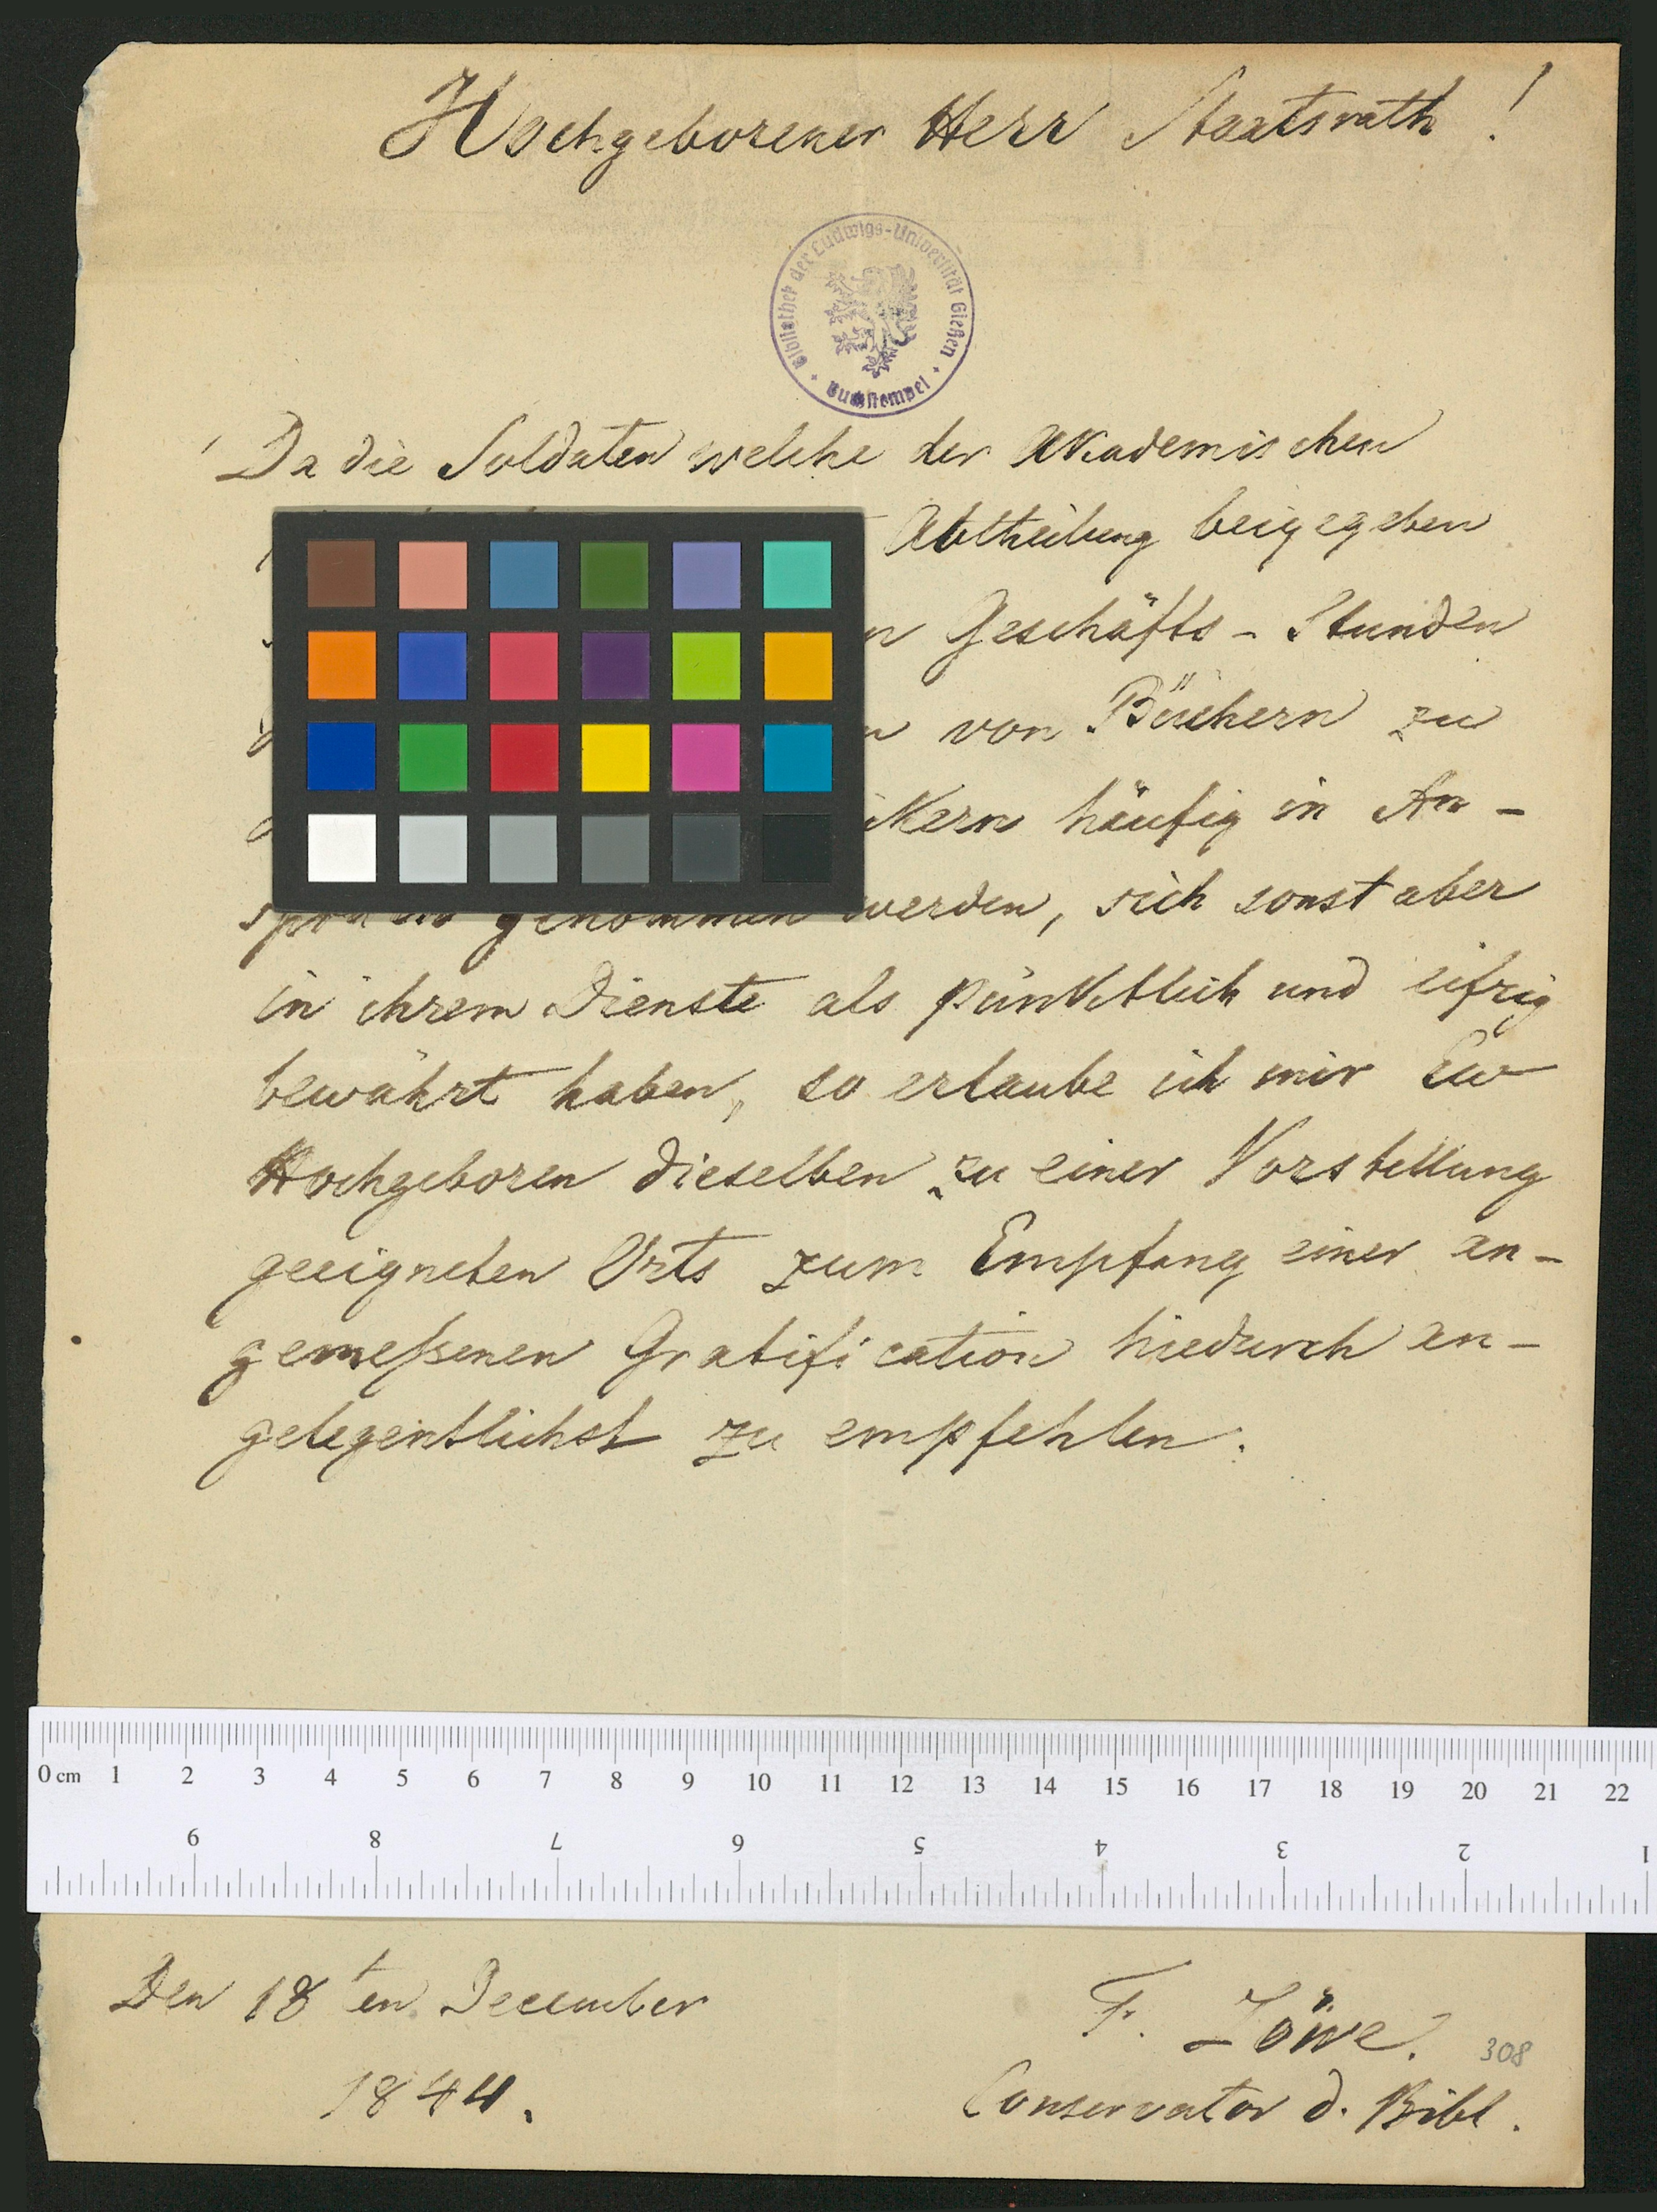 Hochgeborener Herr Staatsrath!
Bibliothek der Ludwigs-Universität Gießen
Buchstempel
Da die Soldaten welche der Akademischen
Abtheilung beigegeben
Geschäfts-Stunden
von Büchern zu
häufig in An-
genommen werden, sich sonst aber
in ihrem Dienste als pünktlich und eifrig
bewährt haben, so erlaube ich mir Ew
Hochgeboren dieselben zu einer Vorstellung
geeigneten Orts zum Empfang einer an-
gemeßenen Gratification hiedurch an-
gelegentlichst zu empfehlen.
0 cm 1 2 3 4 5 6 7 8 9 10 11 12 13 14 15 16 17 18 19 20 21 22
9 8 7 6 5 4 3 2 1
Den 18ten December
1844.
F. Löwe.
308
Conservator d. Bibl.